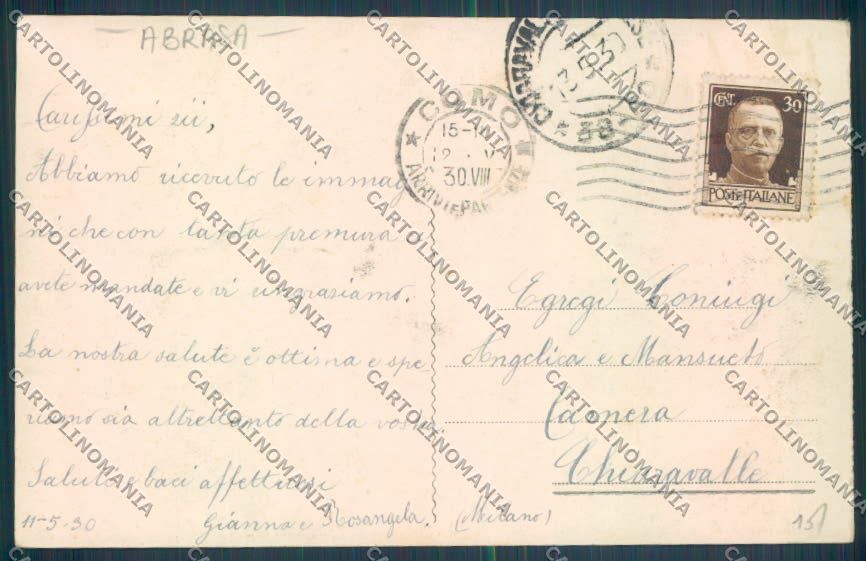 ABRASA
Carissimi zii,
Abbiamo ricevuto le immag
ni che con tanta premura
avete mandate e vi ringraziamo.
La nostra salute è ottima e spe
riamo sia altrettanto della vostra
Saluti e baci affettuosi
11-5-30 Gianna e Rosangela.
COMO
15-
30.VIII
ARRIVI E PARTENZE
CENT. 30
POSTE ITALIANE
Egregi Coniugi
Angelica e Mansueto
Chiaravalle
(Milano)
15/
CARTOLINOMANIA